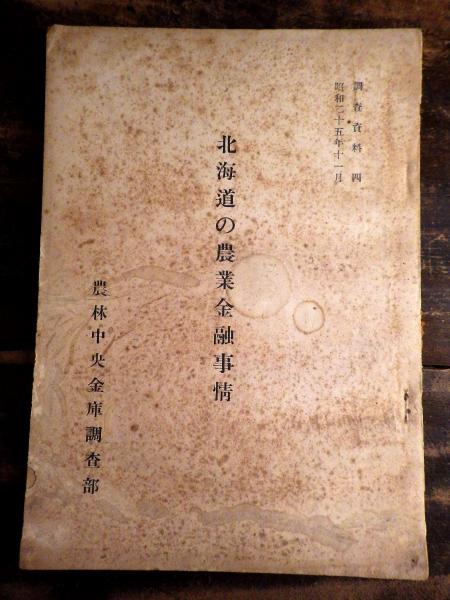 調査資料 四
昭和二十五年十一月
北海道の農業金融事情
農林中央金庫調査部